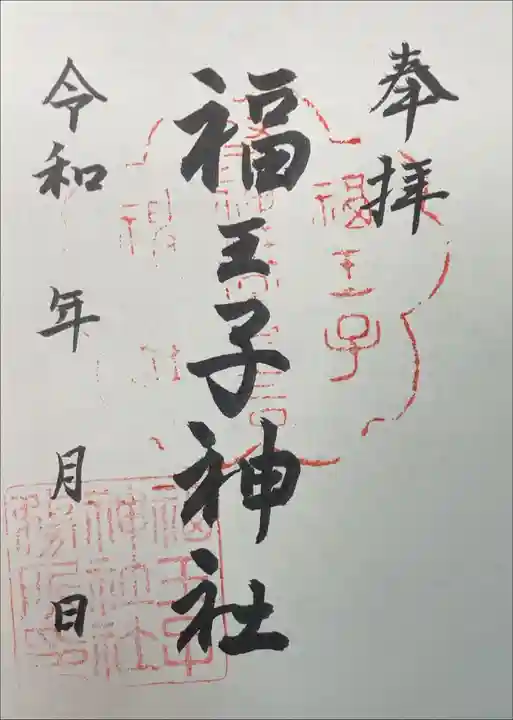 奉拝
福王子
福王子神社
令和 年 月 日
福王子
神社